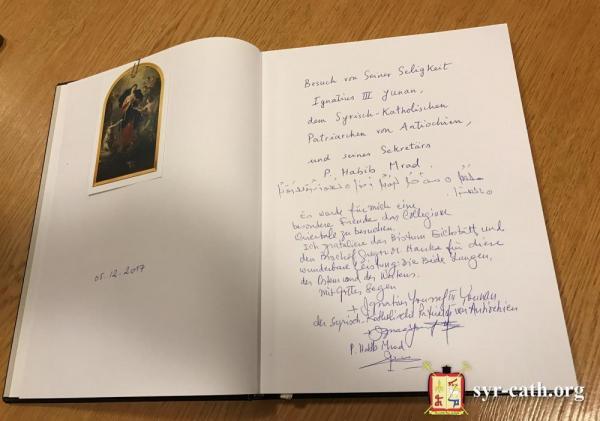 05.12.2017
Besuch von Seiner Seligkeit
Ignatius III Yunan,
dem Syrisch-Katholischen
Patriarchen von Antiochien,
und seines Sekretärs
P. Habib Mrad.
Es wurde für mich eine
besondere Freude das Collegium
Orientale zu besuchen.
Ich gratuliere das Bistum Eichstätt und
den Bischof Gregor M. Hanke für diese
wunderbare Leistung: die Beide Lungen,
des Ostens und des Westens.
Mit Gottes Segen
+ Ignatius Youssef III Younan
der Syrisch-Katholische Patriarch von Antiochien
P. Habib Mrad
syr-cath.org